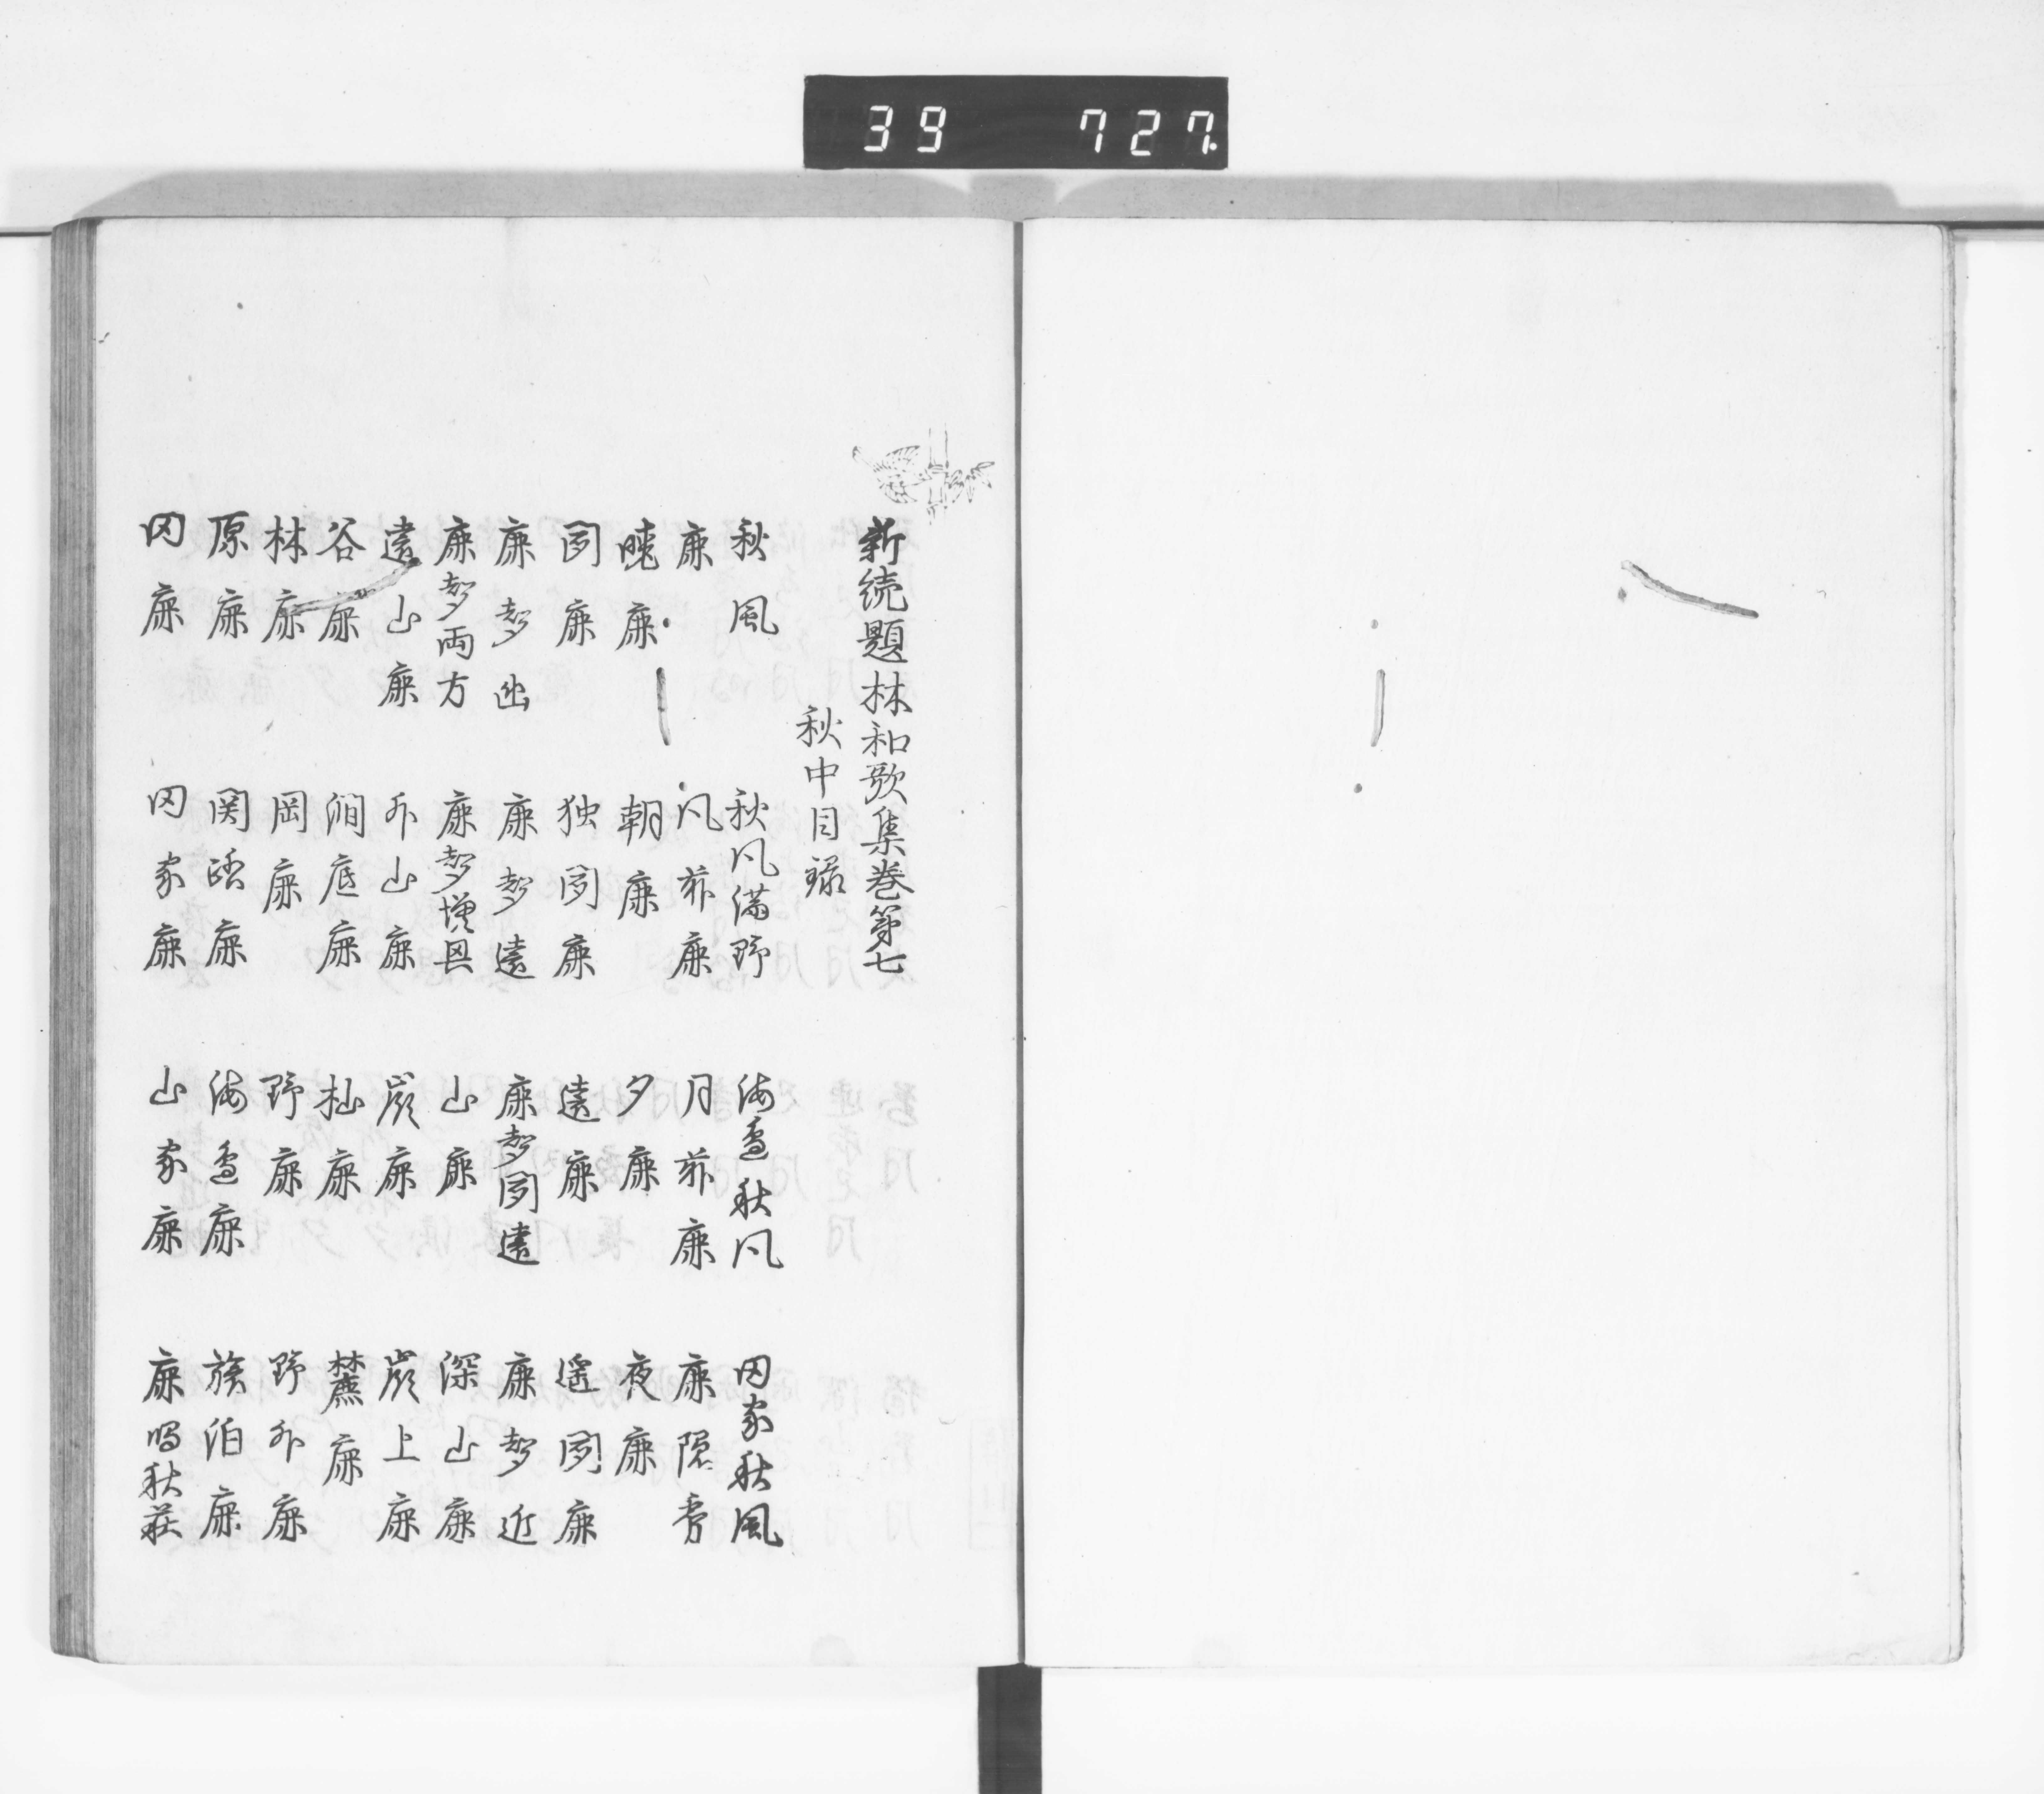 39 727
新続題林和歌集巻第七
秋中目録
秋風 秋風満野 海辺秋風 田家秋風
鹿 風前鹿 月前鹿 鹿隠霧
暁鹿 朝鹿 夕鹿 夜鹿
聞鹿 独聞鹿 遠鹿 遥聞鹿
鹿声幽 鹿声遠 鹿声聞遠 鹿声近
鹿声両方 鹿声増恩 山鹿 深山鹿
遠山鹿 外山鹿 嶺鹿 嶺上鹿
谷鹿 澗底鹿 杣鹿 麓鹿
林鹿 岡鹿 野鹿 野外鹿
原鹿 関路鹿 海辺鹿 旅泊鹿
田鹿 田家鹿 山家鹿 鹿鳴秋萩